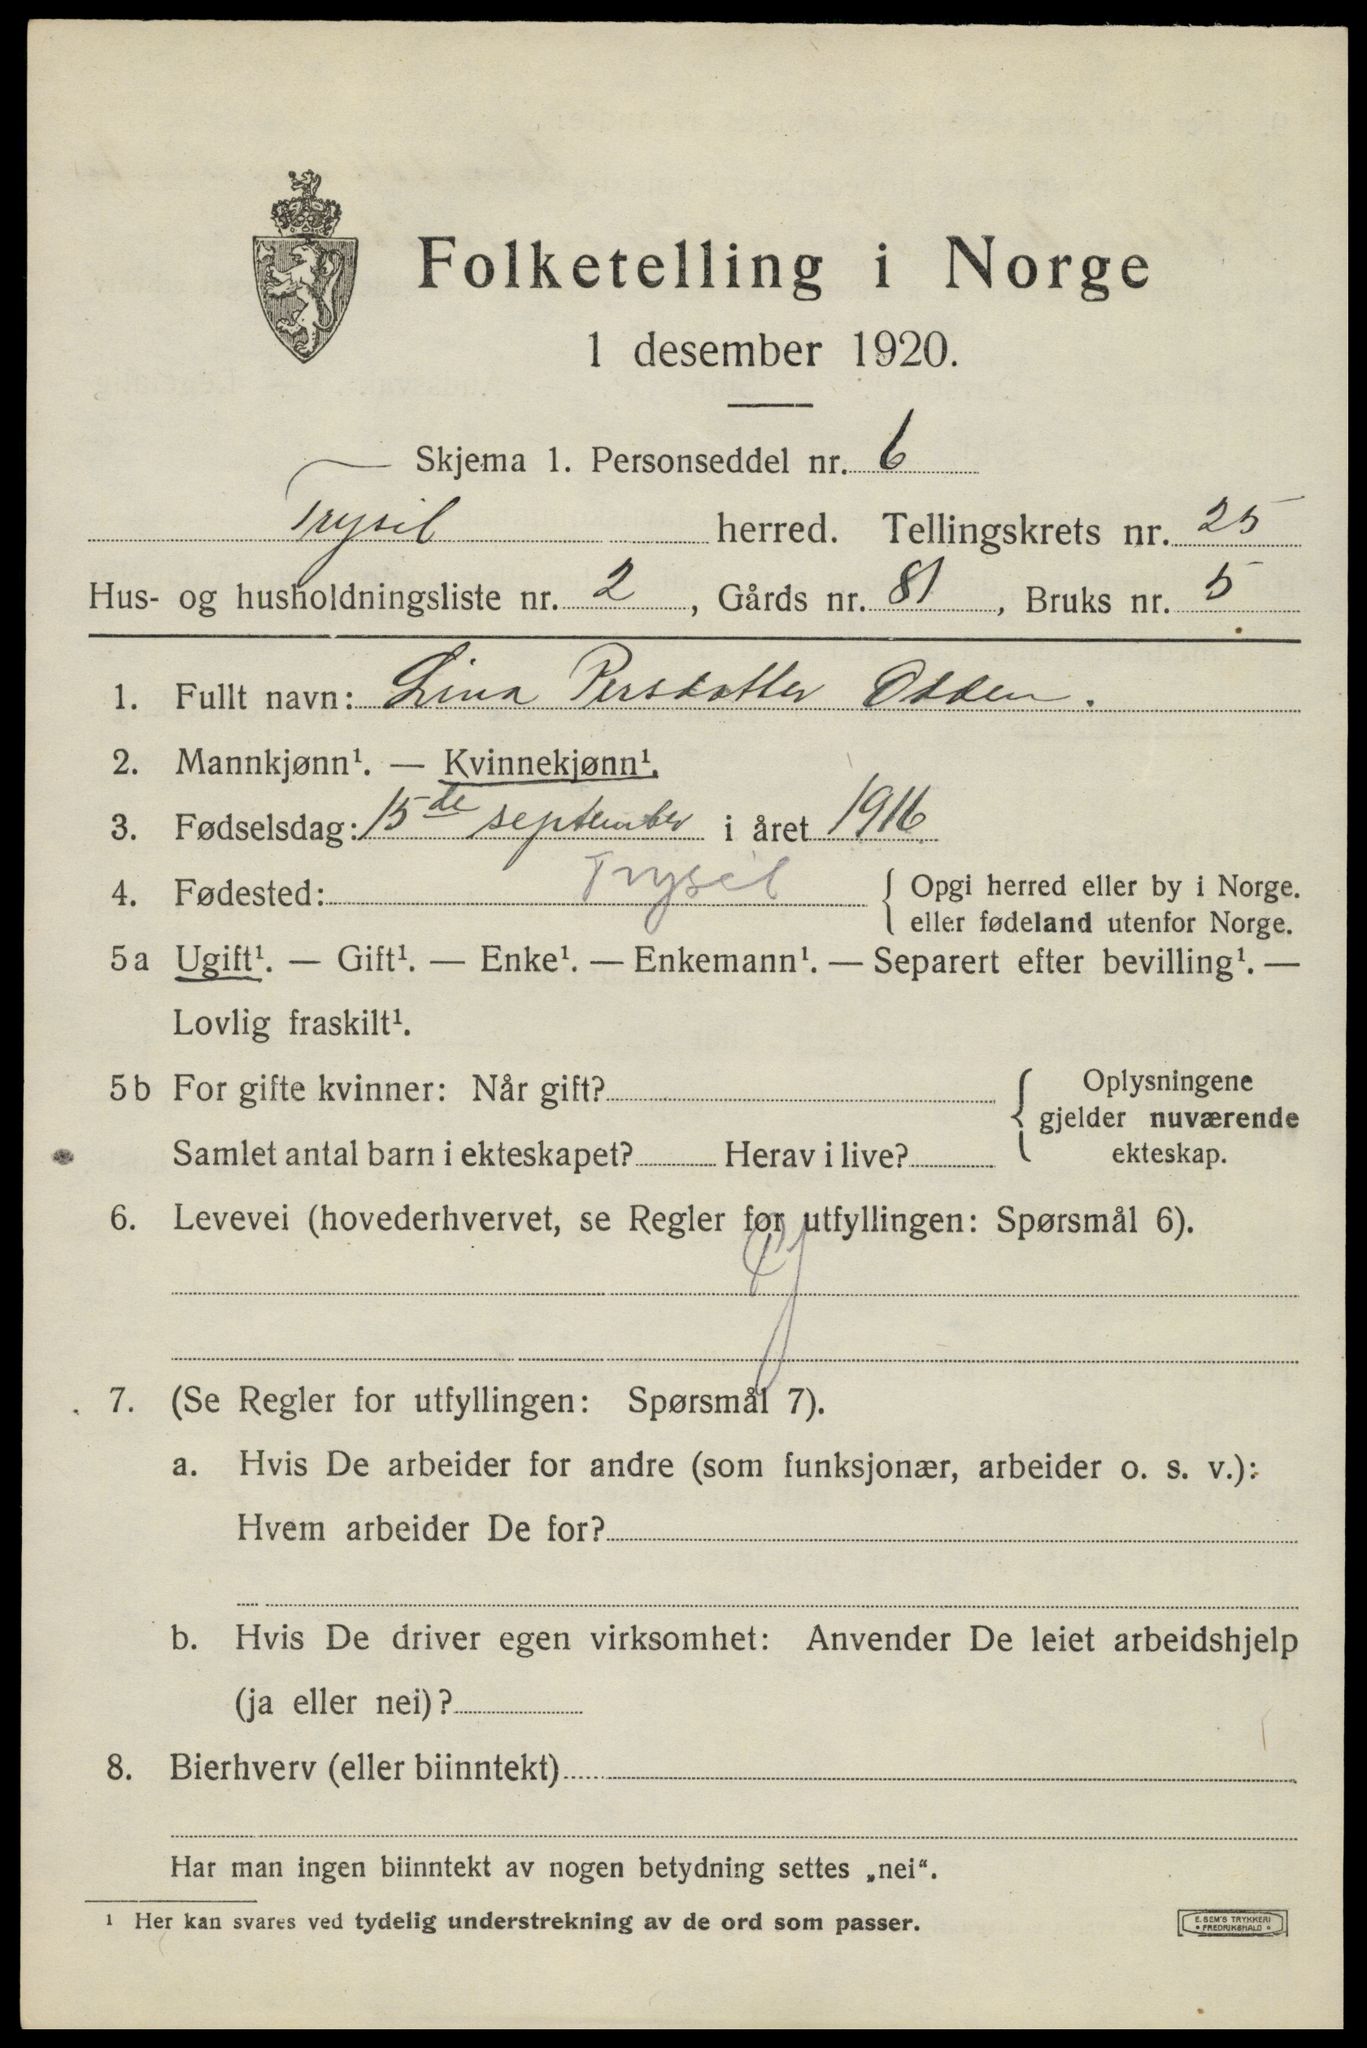 Folketelling i Norge
1 desember 1920.
Skjema 1. Personseddel nr. 6
Trysil herred. Tellingskrets nr. 25
Hus- og husholdningsliste nr. 2, Gårds nr. 81, Bruks nr. 5
1. Fullt navn: Lina Persdatter Odden.
2. Mannkjønn¹. — Kvinnekjønn¹.
3. Fødselsdag: 15de september i året 1916
4. Fødested: Trysil { Opgi herred eller by i Norge.
eller fødeland utenfor Norge.
5a Ugift¹. — Gift¹. — Enke¹. — Enkemann¹. — Separert efter bevilling¹. —
Lovlig fraskilt¹.
5b For gifte kvinner: Når gift? { Oplysningene
gjelder nuværende
Samlet antal barn i ekteskapet? Herav i live? ekteskap.
6. Levevei (hovederhvervet, se Regler for utfyllingen: Spørsmål 6).
7. (Se Regler for utfyllingen: Spørsmål 7).
a. Hvis De arbeider for andre (som funksjonær, arbeider o. s. v.):
Hvem arbeider De for?
b. Hvis De driver egen virksomhet: Anvender De leiet arbeidshjelp
(ja eller nei)?
8. Bierhverv (eller biinntekt)
Har man ingen biinntekt av nogen betydning settes „nei“.
¹ Her kan svares ved tydelig understrekning av de ord som passer.
E. SEM'S TRYKKERI
• FREDRIKSHALD •